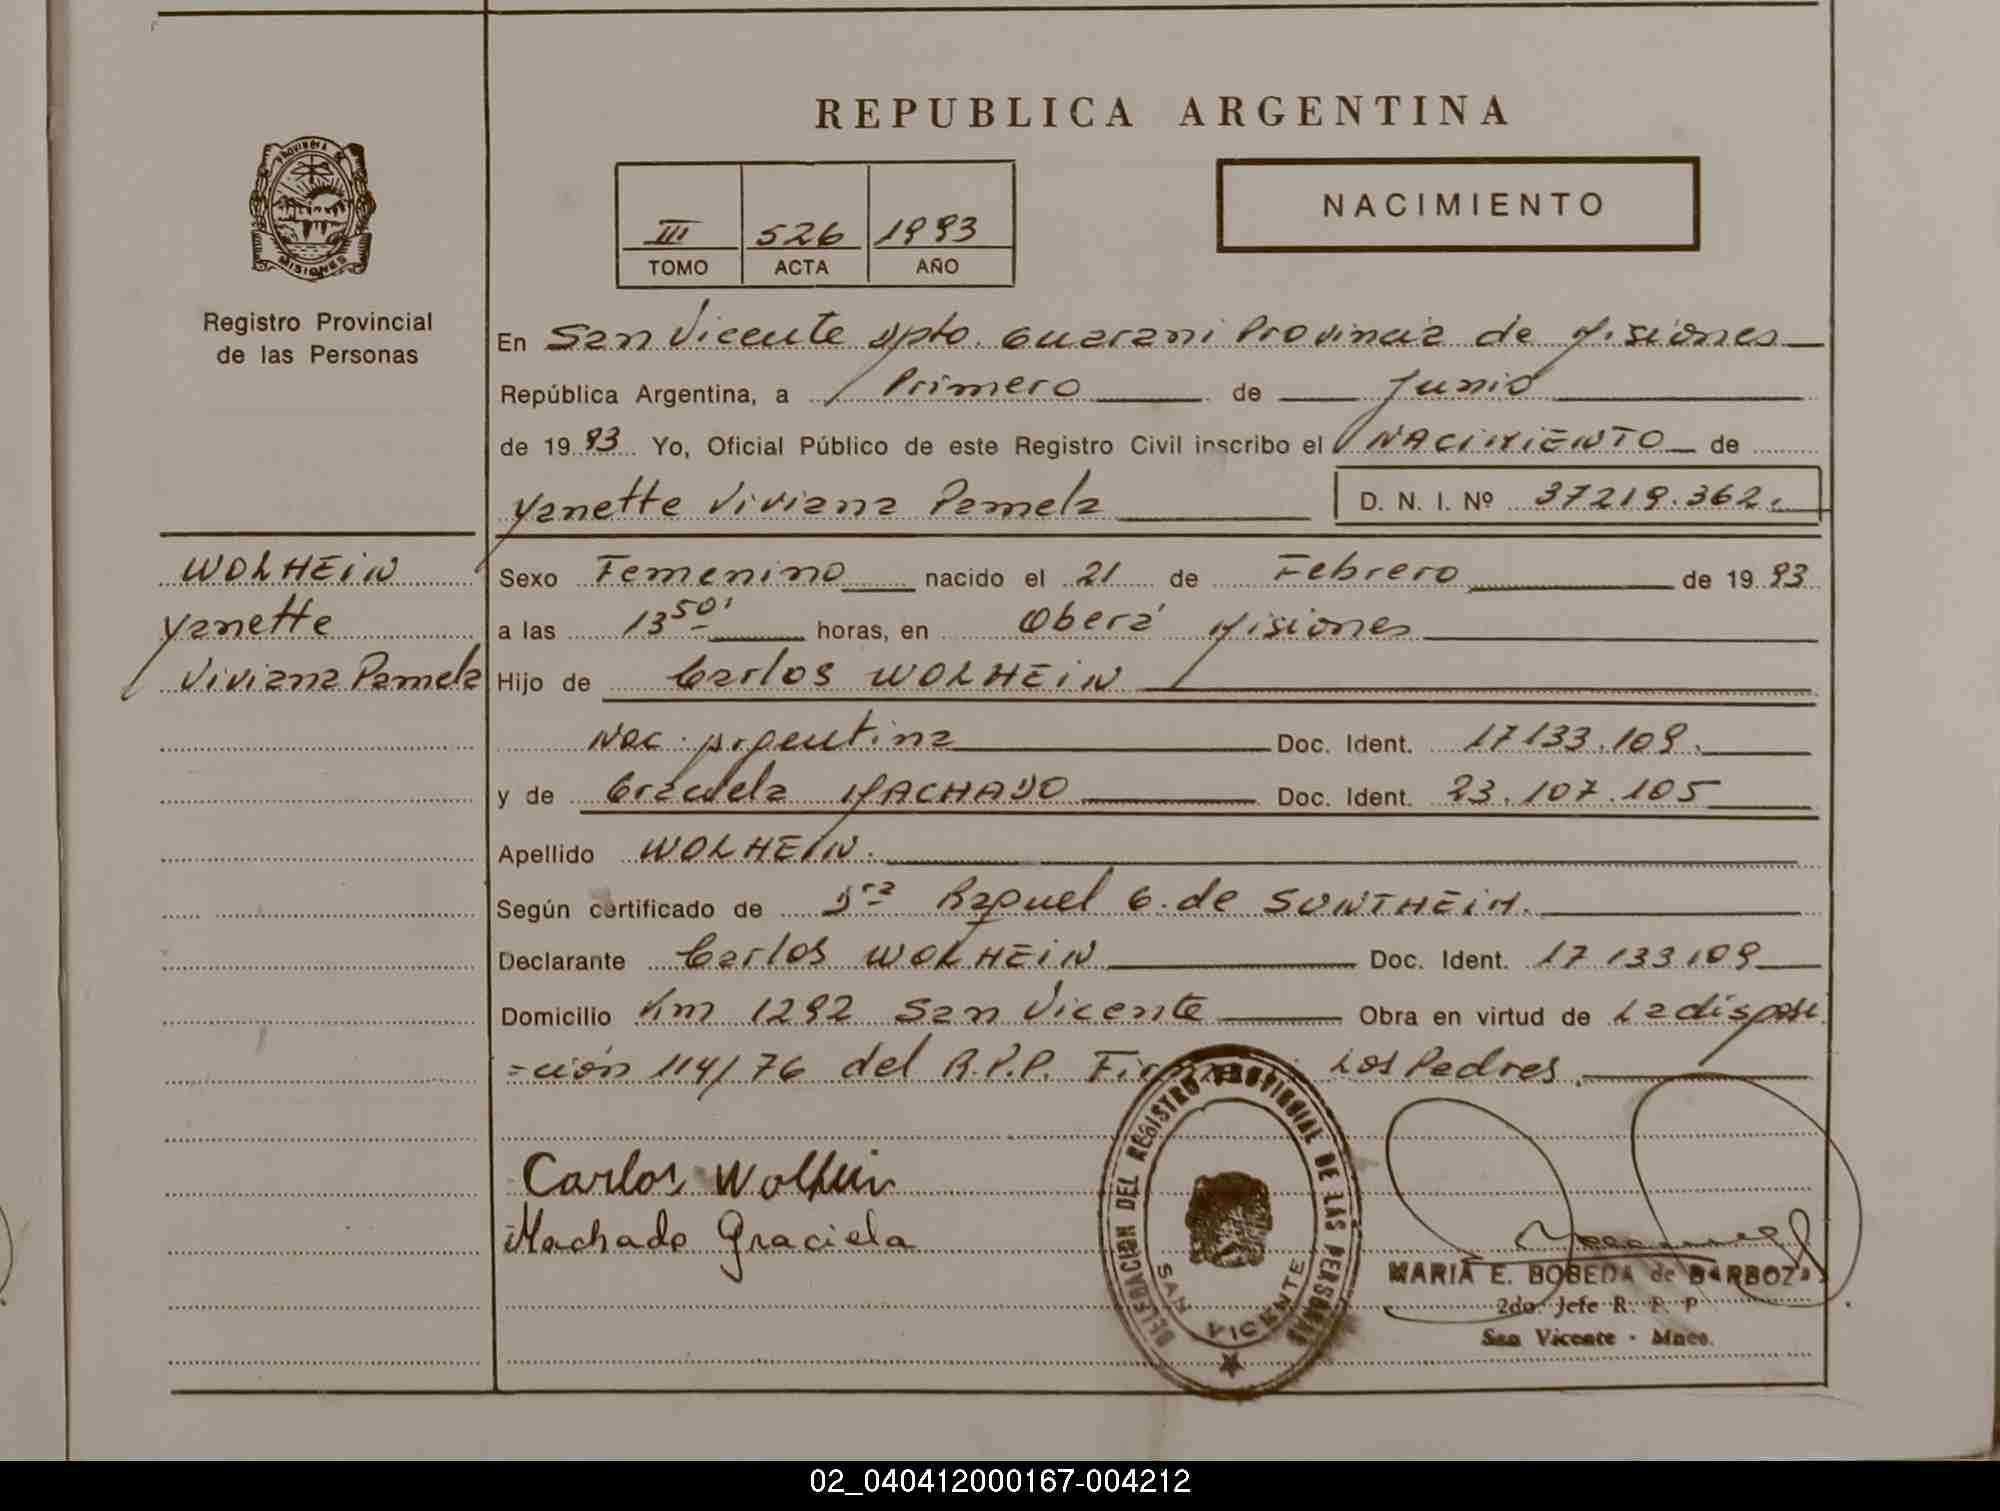 REPUBLICA ARGENTINA
PROVINCIA DE
MISIONES
Registro Provincial
de las Personas
III 526 1993
TOMO ACTA AÑO
NACIMIENTO
En San Vicente Dpto. Guarani Provincia de Misiones
República Argentina, a Primero de Junio
de 1993 Yo, Oficial Público de este Registro Civil inscribo el NACIMIENTO de
Yanette Viviana Pamela D. N. I. Nº 37219.362.
WOLHEIN
Yanette
Viviana Pamela
Sexo Femenino nacido el 21 de Febrero de 1993
a las 13 50' horas, en Oberá Misiones
Hijo de Carlos WOLHEIN
Nac. Argentina Doc. Ident. 17133.109.
y de Graciela MACHADO Doc. Ident. 23.107.105
Apellido WOLHEIN.
Según certificado de Dra Raquel G. de SUNTHEIM.
Declarante Carlos WOLHEIN Doc. Ident. 17 133109
Domicilio Km 1292 San Vicente Obra en virtud de La disposi
=ción 114/76 del R.P.P. Firman Los Padres.
Carlos Wolhein
Machado Graciela
DELEGACION DEL REGISTRO PROVINCIAL DE LAS PERSONAS
SAN VICENTE
MARIA E. BOBEDA de BARBOZA
2do. Jefe R. P. P
San Vicente - Mnes.
02_040412000167-004212